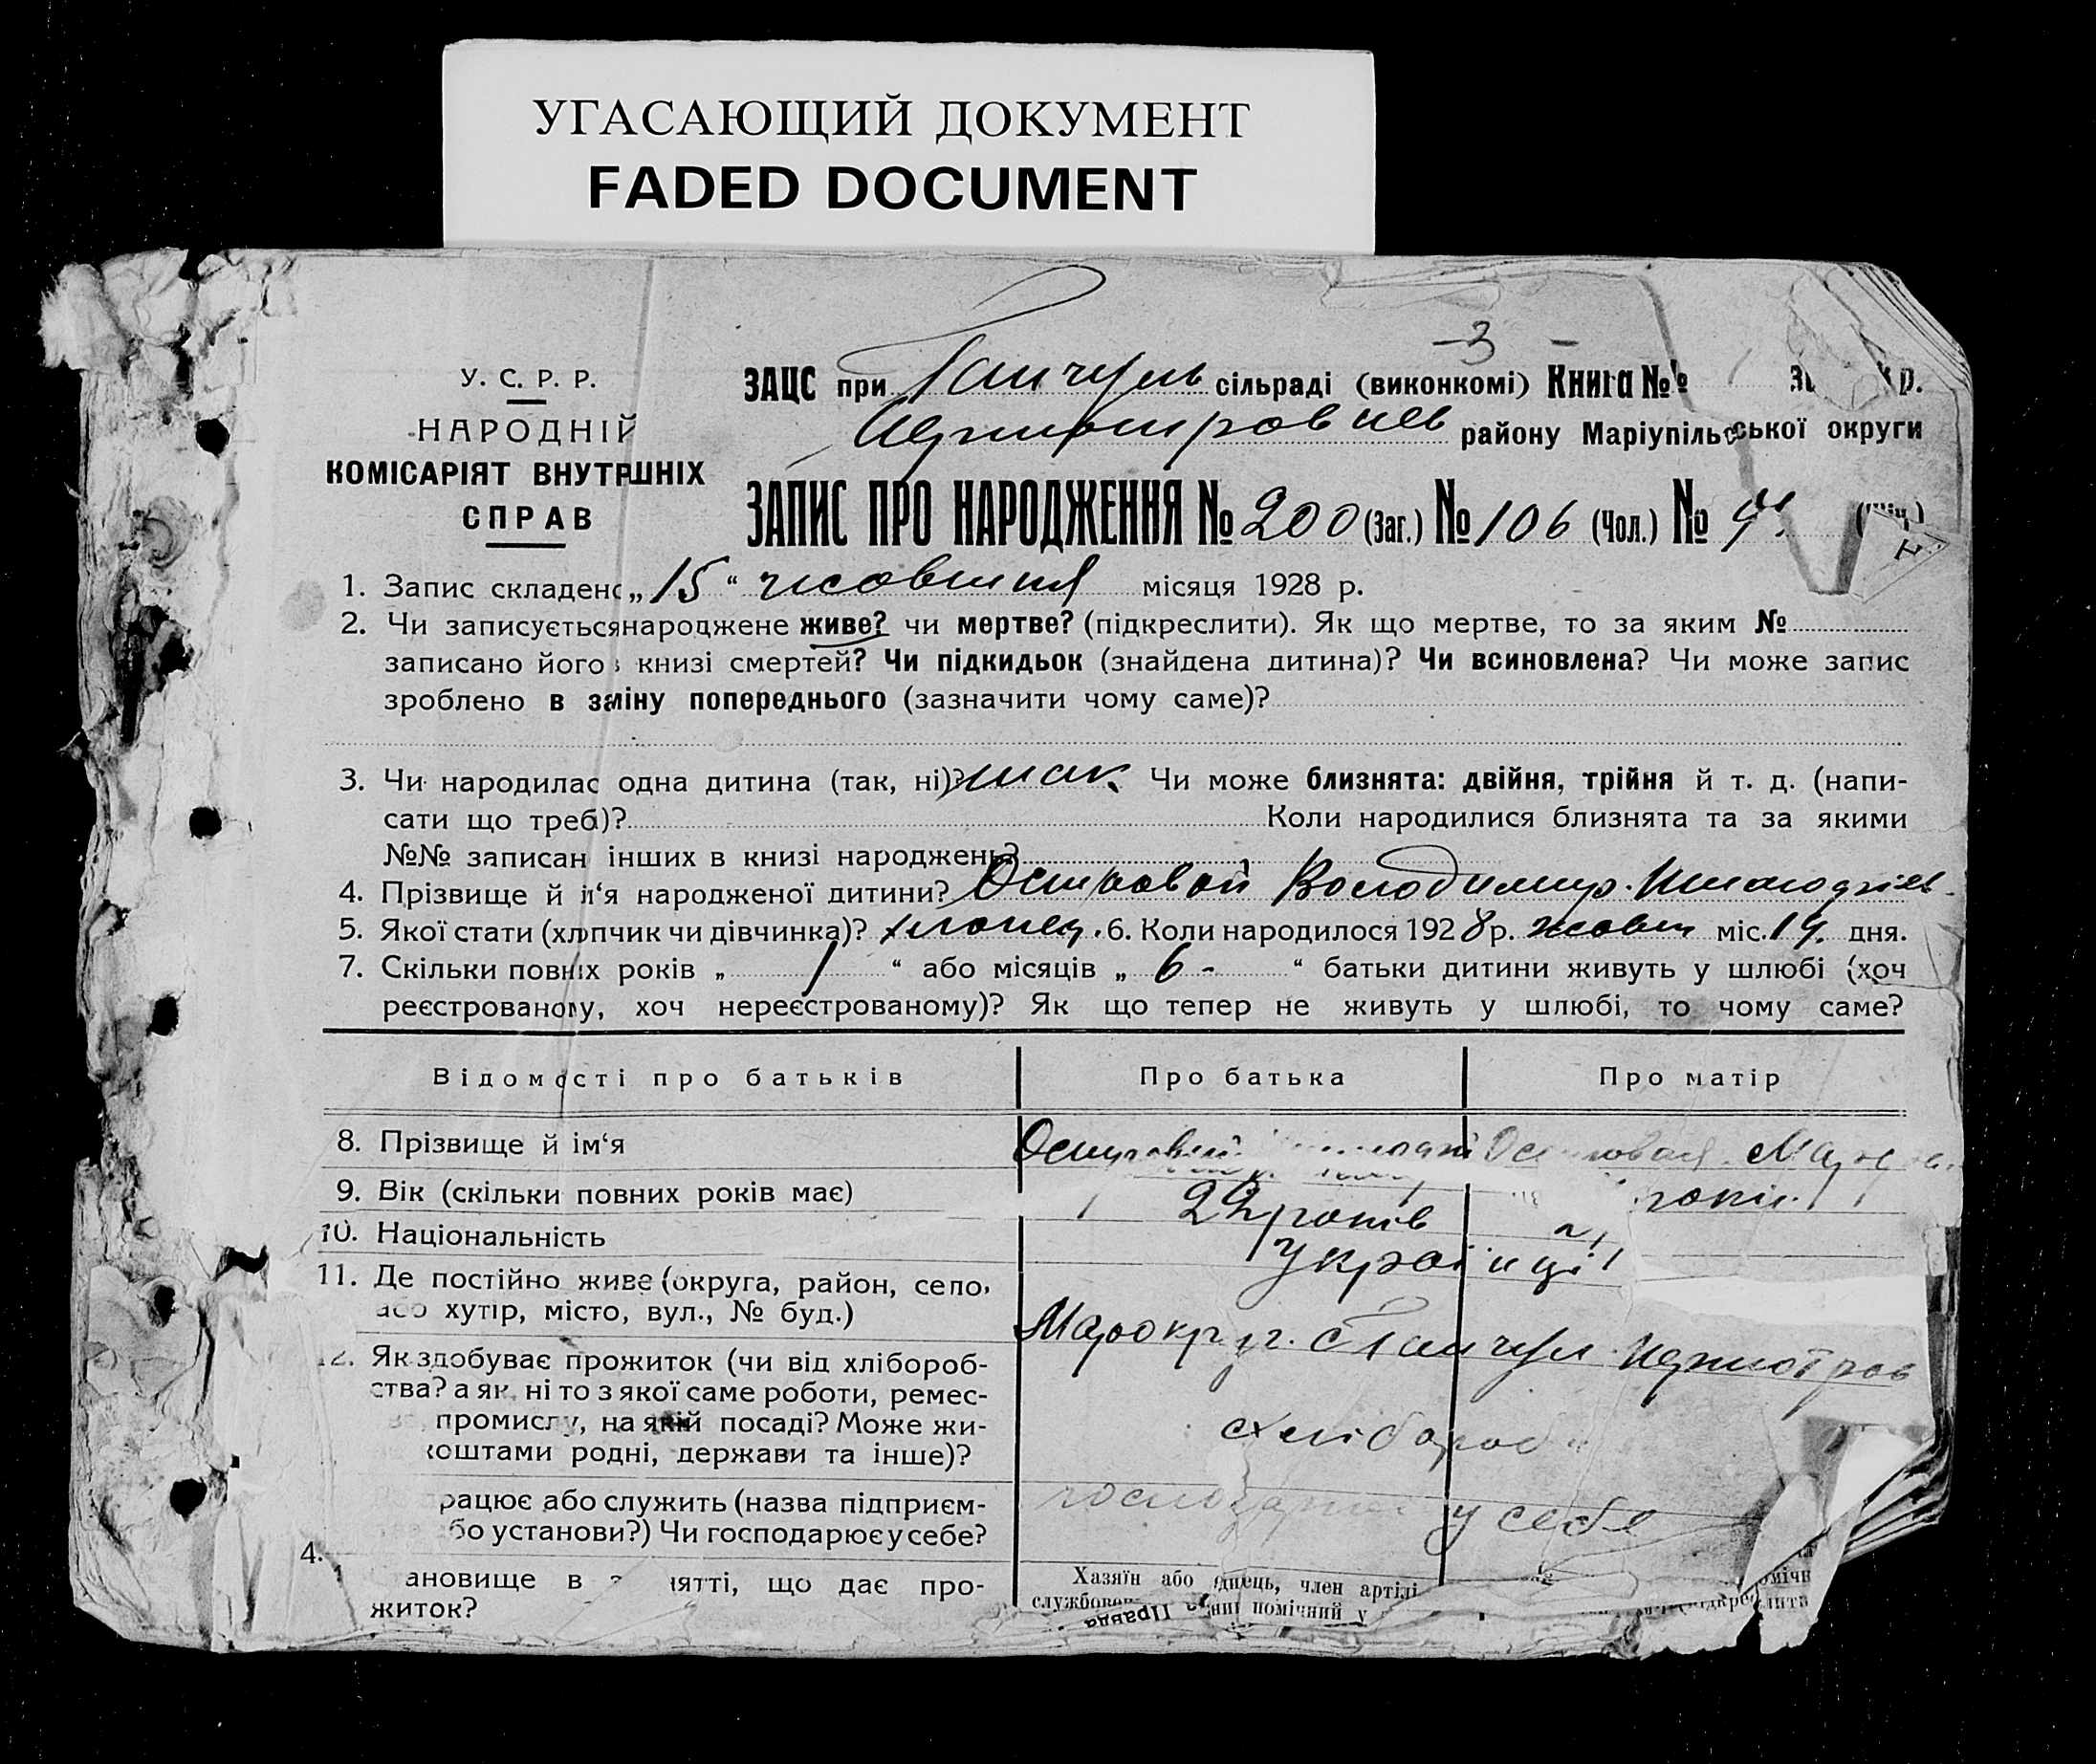 УГАСАЮЩИЙ ДОКУМЕНТ
FADED DOCUMENT
-3-
У. С. Р. Р.
НАРОДНІЙ
КОМІСАРІЯТ ВНУТРШНІХ
СПРАВ
ЗАЦС при Гайчуль сільраді (виконкомі) Книга №
району Маріупільської округи
ЗАПИС ПРО НАРОДЖЕННЯ № 200 (Заг.) № 106 (Чол.) №
1. Запис складено „15“ жовтня місяця 1928 р.
2. Чи записується народжене живе? чи мертве? (підкреслити). Як що мертве, то за яким №
записано його в книзі смертей? Чи підкидьок (знайдена дитина)? Чи всиновлена? Чи може запис
зроблено в заміну попереднього (зазначити чому саме)?
3. Чи народилас одна дитина (так, ні)? так Чи може близнята: двійня, трійня й т. д. (напи-
сати що треба)? Коли народилися близнята та за якими
№№ записан інших в книзі народжень?
4. Прізвище й ім‘я народженої дитини? Островой Володимир
5. Якої стати (хлопчик чи дівчинка)? хлопец. 6. Коли народилося 1928 р. жовт міс. 14. дня.
7. Скільки повних років „ 1 “ або місяців „ 6 - “ батьки дитини живуть у шлюбі (хоч
реєстрованому, хоч нереєстрованому)? Як що тепер не живуть у шлюбі, то чому саме?
Відомості про батьків Про батька Про матір
8. Прізвище й ім‘я Островой
9. Вік (скільки повних років має) 22 років
10. Національність Українці
11. Де постійно живе (округа, район, село,
або хутір, місто, вул., № буд.)
12. Як здобуває прожиток (чи від хлібороб-
ства? а як ні то з якої саме роботи, ремес-
промислу, на якій посаді? Може жи-
коштами родні, держави та інше)?
рацює або служить (назва підприєм-
бо установи?) Чи господарює у себе? у себе
4.
ановище в занятті, що дає про-
житок?
Хазяїн або член артілі
помічний у
Правда